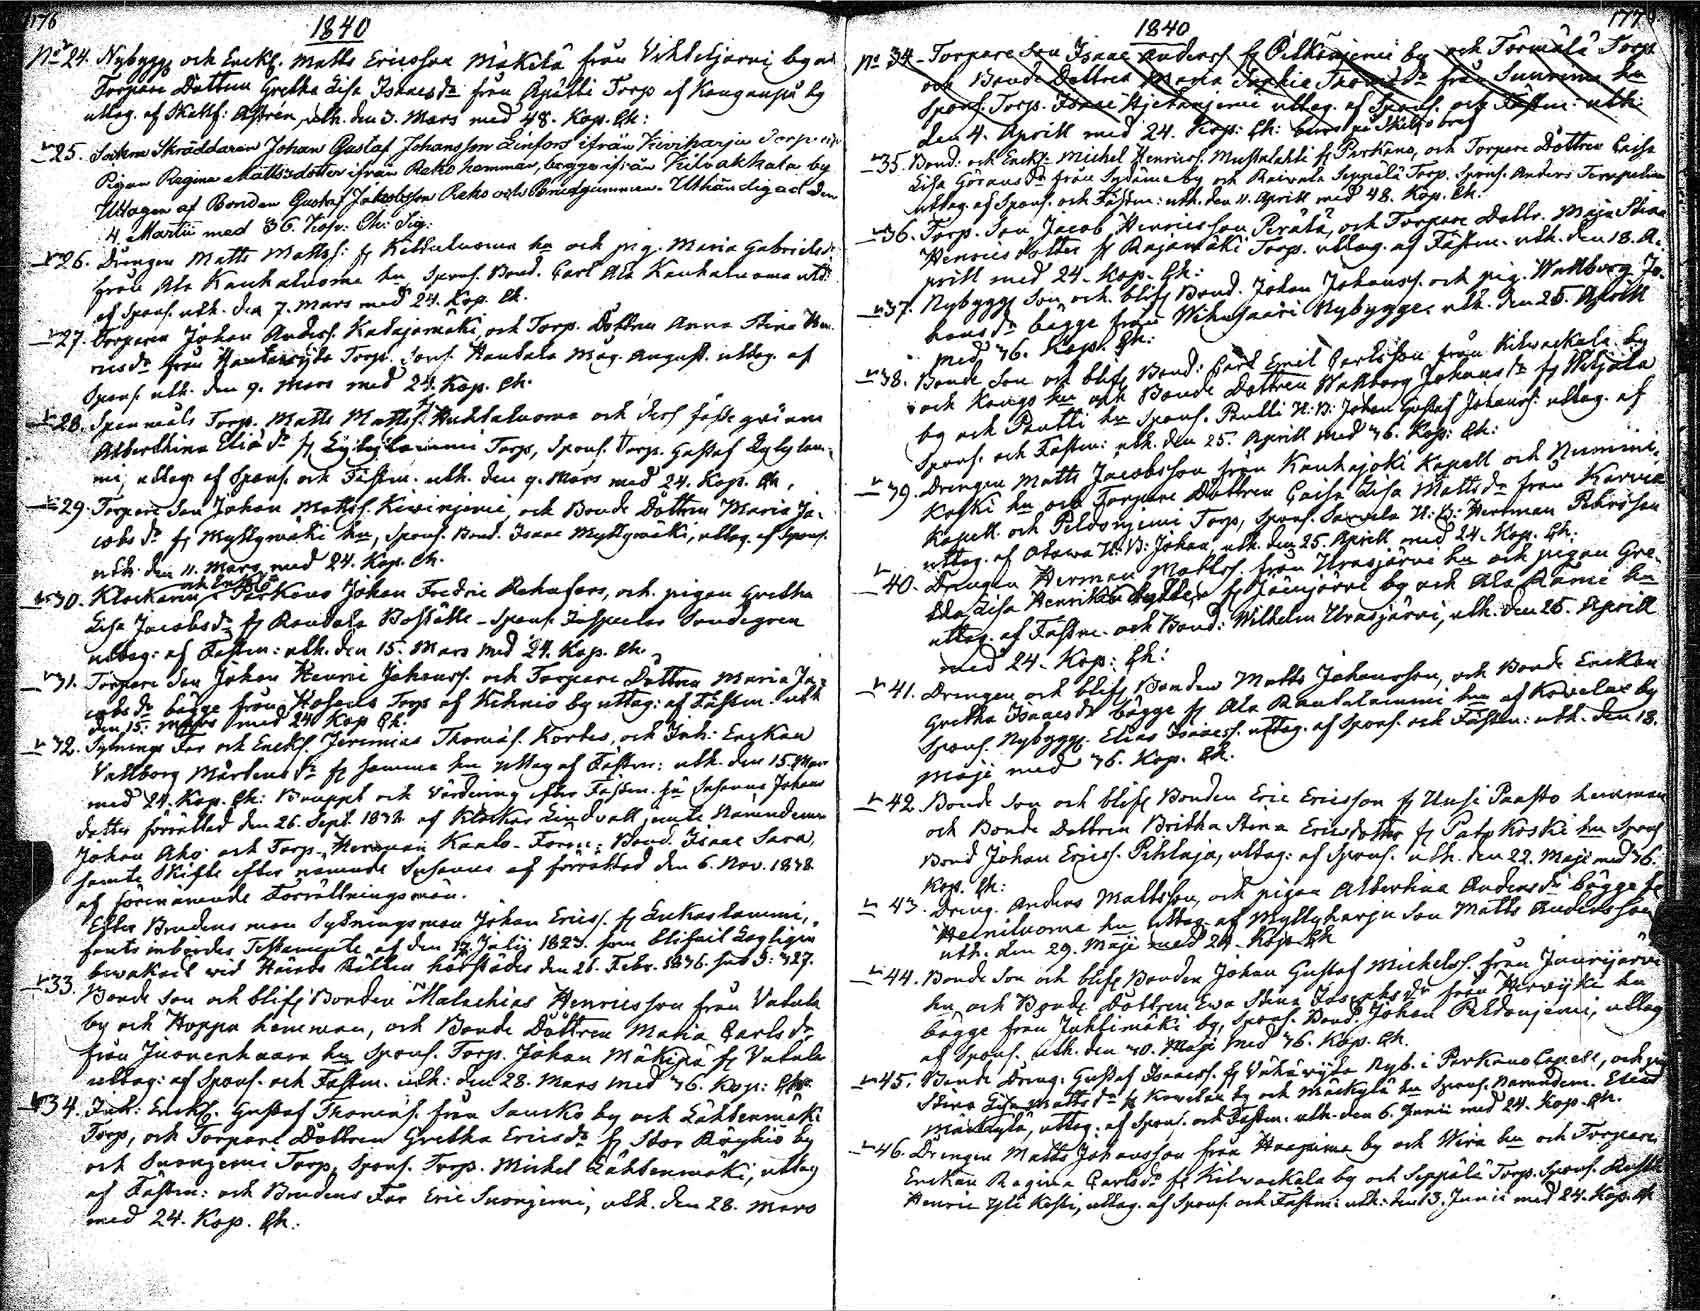 176
1840
No 24. Nybygg. och Enckl. Matts Ericsson Mäkelä från Vihteljärvi by och
Torpare Dottren Gretha Lisa Isaacs dr från Ryätti Torp af Kanganpä by
uttag. af Skallf: Astrén, utk. den 3. Mars med 48. Kop. Ch:
" 25. Sockne Skräddaren Johan Gustaf Johansson Linfors ifrån Kiviharju Torp och
Pigan Regina Mattsdotter ifrån Reko hemman, bägge ifrån Kilvakkala by
Uttagen af Bonden Gustaf Jakobsson Reko och Brudgummen. Uthändigad den
4 Martii med 36. Kop: Ch: Sig:
" 26. Drengen Matts Mattss: fr Kettuluoma hn och pig. Maria Gabriels dr
från Ala Kauhaluoma hn, Spons. Bond. Carl Ala Kauhaluoma uttag
af Spons. utk. den 7. Mars med 24. Kop. Ch.
" 27. Torparen Johan Anderss. Katajamäki, och Torp. Dottren Anna Stina Hen-
rics dr från Torp. Spons. Hautala Mag. August. uttag. af
Spons. utk. den 9. Mars med 24. Kop. Ch.
" 28. Spenmåls Torp. Matts Mattss fr Huhtaluoma och dess fästeqvinna
Alberthina Elia dr fr Lylylammi Torp, Spons. Torp. Gustaf Lylylam-
mi, uttag. af Spons. och Fästm. utk. den 9. Mars med 24. Kop. Ch.
" 29. Torpare Son Johan Mattss. Kivinjemi, och Bonde Dottren Maria Ja-
cobs dr fr Myllymäki hn, Spons. Bond. Isaac Myllymäki, uttag. af Spons.
utk. den 11. Mars med 24. Kop. Ch.
och Enkl.
" 30. Klockaren i Parkano Johan Fredric Rehnfors, och pigan Gretha
Lisa Jacobs dr fr Raudala Boställe - Spons. Inspector Sandegren
uttag: af Fästm: utk. den 15. Mars med 24. Kop. Ch.
" 31. Torpare Son Johan Henric Johanss. och Torpare Dottren Maria Ja-
cobs dr bägge från Torp af Kihniö by uttag: af Fästm. utk
den 15. Mars med 24 Kop Ch:
" 32. Sytnings Far och Enckl. Jeremias Thomas. Kortes, och Inh: Enckan
Vallborg Mårtens dr fr samma hn uttag af Fästm: utk. den 15. Mars
med 24. Kop. Ch: Bouppt och Värdering efter Fästm. hu Susanna Johans
dotter förrättad den 26. Sept. 1838 af Klockar Lindvall jemte Nämndeman
Johan Aho och Torp. Herman Kaalo-Form: Bond. Isaac Sara,
samt Skifte efter nämnde Susanna af förrättad den 6. Nov. 1838.
af förenämnde Förrättningsmän.
Efter Brudens man Sytningsman Johan Ericss. fr Luukaslammi,
fants inbördes Testamente af den 17. Julij 1823. som blifvit Lagligen
bevakad vid Härads Rätten härstädes den 26. Febr. 1836. sub §: 327.
" 33. Bonde Son och blifv. Bonden Malachias Henricsson från Vatula
by och Hoppu hemman, och Bonde Dottren Maria Carls dr
från Juonenhaara hn Spons. Torp. Johan Mäkipä fr Vatula
uttag: af Spons. och Fästm. utk: den 28. Mars med 76. Kop: Ch:
" 34. Inh: Enckl. Gustaf Thomass. från Sauko by och Lähtenmäki
Torp, och Torpare Dottren Gretha Erics dr fr Stor Röyhiö by
och Suonjemi Torp, Spons. Torp. Michel Lähtenmäki, uttag
af Fästm: och Brudens Far Eric Suonjemi, utk. den 28. Mars
med 24. Kop. Ch:
177
1840
No 34. Torpare Son Isaac Anderss. fr Pitkänjemi by och Törmälä Torp
och Bonde Dottren Maria Sophie Thomas dr från Sunnima hn
Spons. Torp. Isaac uttag. af Spons. och Fästm: utk:
den 4. April med 24. Kop: Ch:
" 35. Bond: och Enckl. Michel Henricss. Mustalahti fr Parkano, och Torpare Dottren Caisa
Lisa Görans dr från Sydänne by och Raivala Seppelä Torp. Spons. Anders
uttag. af Spons. och Fästm: utk. den 11. April med 48. Kop. Ch.
" 36. Torp. Son Jacob Henricsson Perälä, och Torpare Dottr. Maja Stina
Henricsdotter fr Rajamäki Torp. uttag. af Fästm. utk. den 18. A-
prill med 24. Kop. Ch:
" 37. Nybygg. Son och blifv. Bond. Johan Johanss. och pig. Wallborg Jo-
hans dr bägge från Wihusaari Nybygge. utk. den 25. Aprill
med 76. Kop. Ch:
" 38. Bonde Son och blifv. Bond: Carl Emil Carlsson från Kilvackala by
och Kango hn och Bonde Dottren Wallborg Johans dr fr Wiljala
by och Poutti hn Spons. Poutti N:B: Johan Gustaf Johanss. uttag. af
Spons. och Fästm: utk. den 25. Aprill med 76. Kop: Ch:
" 39. Drengen Matts Jacobsson från Kauhajoki Kapell och Nummi-
koski hn och Torpare Dottren Caisa Lisa Matts dr från Karvia
Kapell och Peldonjemi Torp, Spons. N:B: Herman Pehrsson
uttag. af Otawa N:B: Johan, utk. den 25. Aprill med 24. Kop. Ch:
" 40. Drengen Herman Mattss. från Urasjärvi hn och pigan Gre-
tha Lisa Henriksdotter fr Jämijärvi by och Ala Rämi hn
uttag. af Fästm. och Bond: Wilhelm Urasjärvi, utk. den 25. Aprill
med 24. Kop: Ch:
" 41. Drengen och blifv. Bonden Matts Johansson, och Bonde Enckan
Gretha Isaacs dr bägge fr Ala Rautalammi hn af Kovelax by
Spons. Nybygg. Elias Isaacss. uttag. af Spons. och Fästm: utk. den 18.
Maji med 76. Kop. Ch.
" 42. Bonde Son och blifv. Bonden Eric Ericsson fr Uusi Paasto hemman
och Bonde Dottren Britha Stena Ericsdotter fr Patokoski hn Spons
Bond Johan Ericss. Pihlaja, uttag: af Spons. utk. den 22. Maji med 76.
Kop. Ch:
" 43. Dreng. Anders Mattsson, och pigan Albertina Anders dr bägge fr
Heiniluoma hn uttag. af Myllyharju Son Matts Andersson
utk. den 29. Maji med 24. Kop. Ch
" 44. Bonde Son och blifv Bonden Johan Gustaf Michelss. från Jaurijärvi
hn och Bonde Dottren Eva Stina Jacobs dr från hn
bägge från Juhtimäki by, Spons. Bond. Johan Peldonjemi, uttag
af Spons. utk. den 30. Maji med 76. Kop. Ch.
" 45. Bonde Dreng. Gustaf Isaacss. fr Vähäröyhiö Nyb. i Parkano Capell, och pig
Stina Lisa Matts dr fr Kovelax by och Mäckylä hn Spons. Nämndem. Elias
Mäckylä, uttag. af Spons. och Fästm. utk. den 6. Junii med 24. Kop. Ch.
" 46. Drengen Matts Johansson från Haapima by och Wira hn och Torpare
Enckan Regina Carls dr fr Kilvackala by och Seppälä Torp. Spons. Rusth.
Henric Yli Kesti, uttag. af Spons och Fästm: utk: den 13. Junii med 24. Kop. Ch